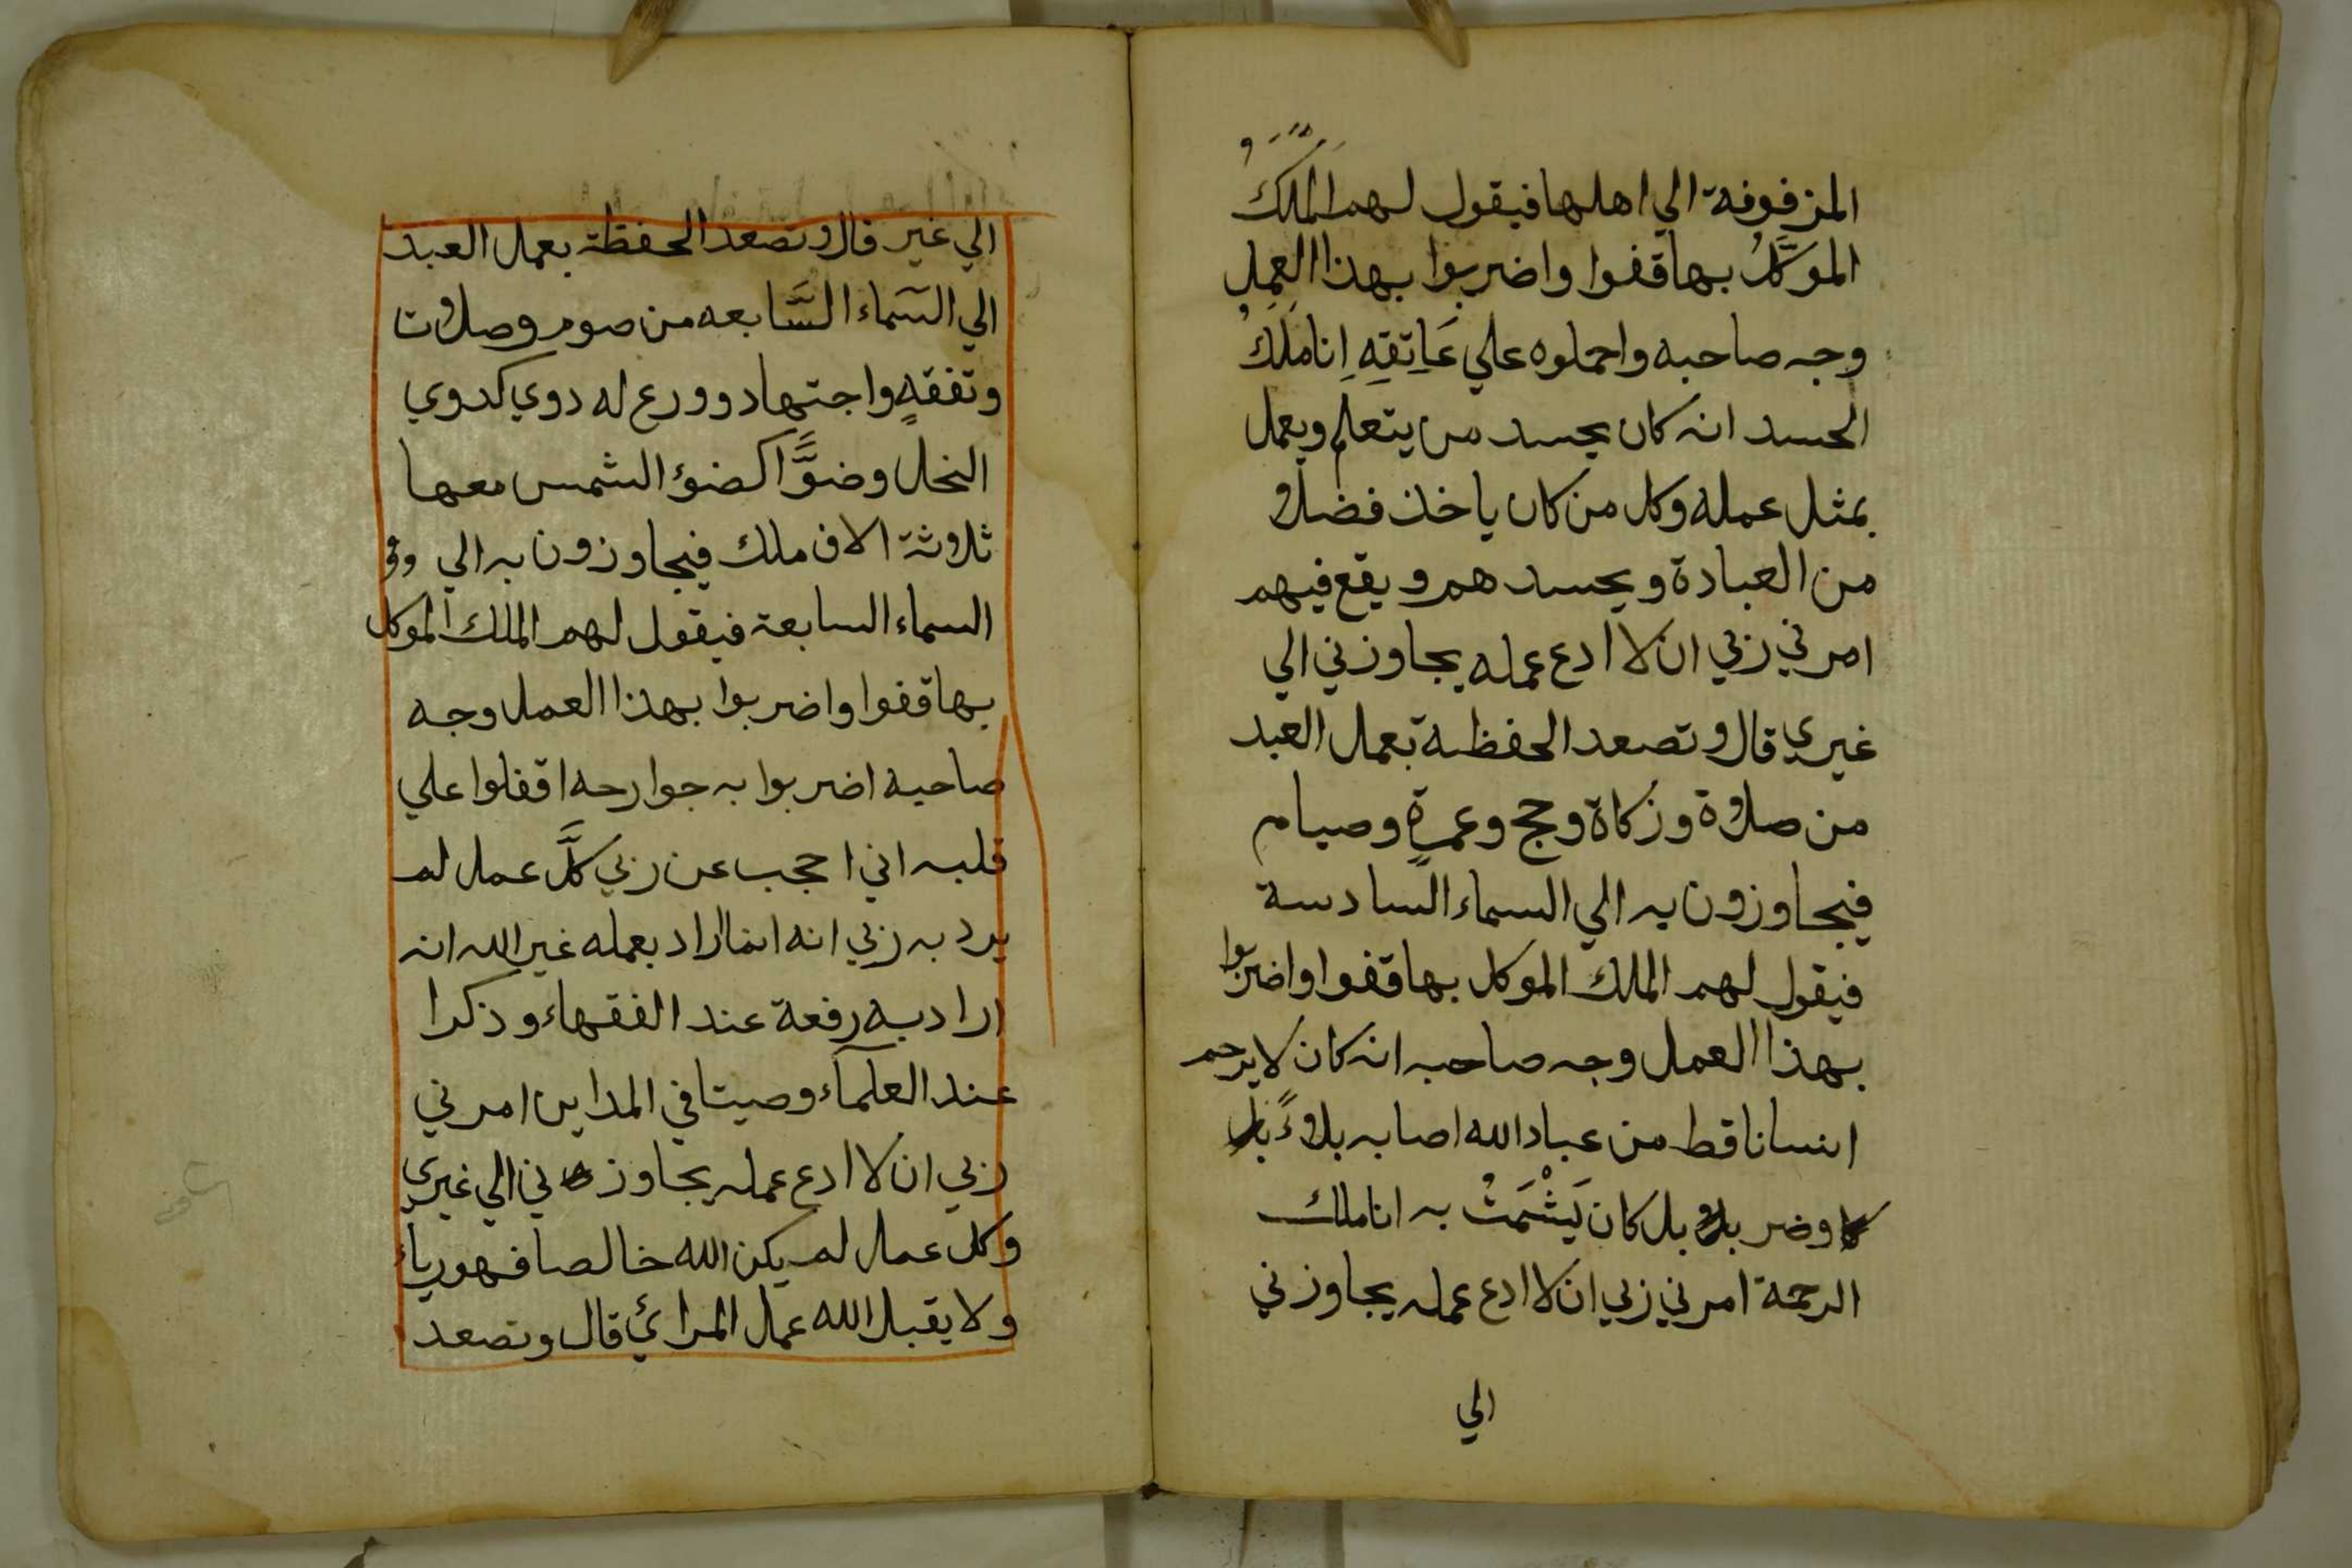 المزفوفة الي اهلها فيقول لهم المَلَكُ
الموَكَّلُ بها قفوا واضربوا بهذا العمل
وجه صاحبه واحملوه علي عَاتِقِهِ انا مَلَكُ
الحسد انه كان يحسد من يتعلم ويعمل
بمثل عمله وكل من كان ياخذ فضلا
من العبادة ويحسدهم ويقع فيهم
امرني ربي ان لا ادع عمله يجاوزني الي
غيري قال وتصعد الحفظة بعمل العبد
من صلاة وزكاة وحج وعمرةٍ وصيام
فيجاوزون به الي السماء السادسة
فيقول لهم الملك الموكل بها قفوا واضربوا
بهذا العمل وجه صاحبه انه كان لا يرحم
انسانا قط من عباد الله اصابه بلاءً
اوضر بل كان يَشْمَتْ به انا ملك
الرحمة امرني ربي ان لا ادع عمله يجاوزني
الي
الي غير قال وتصعد الحفظة بعمل العبد
الي السّماء السَّابعه من صوم وصلات
وتفقهٍ واجتهاد وورع له دوي كدوي
النحل وضوًّا كضوء الشمس معها
ثلاثة الاف ملك فيجاوزون به الي
السماء السابعة فيقول لهم الملك الموكل
بها قفوا واضربوا بهذا العمل وجه
صاحبه اضربوا به جوارحه اقفلوا علي
قلبه اني احجب عن ربي كلَّ عمل لم
يرد به ربي انه انما اراد بعمله غير الله انه
اراد به رفعة عند الفقهاء وذكرا
عند العلمآء وصيتا في المداين امرني
ربي ان لا ادع عمله يجاوزني الي غيري
وكل عمل لم يكن الله خالصا فهو رياء
ولا يقبل الله عمل المرائي قال وتصعد